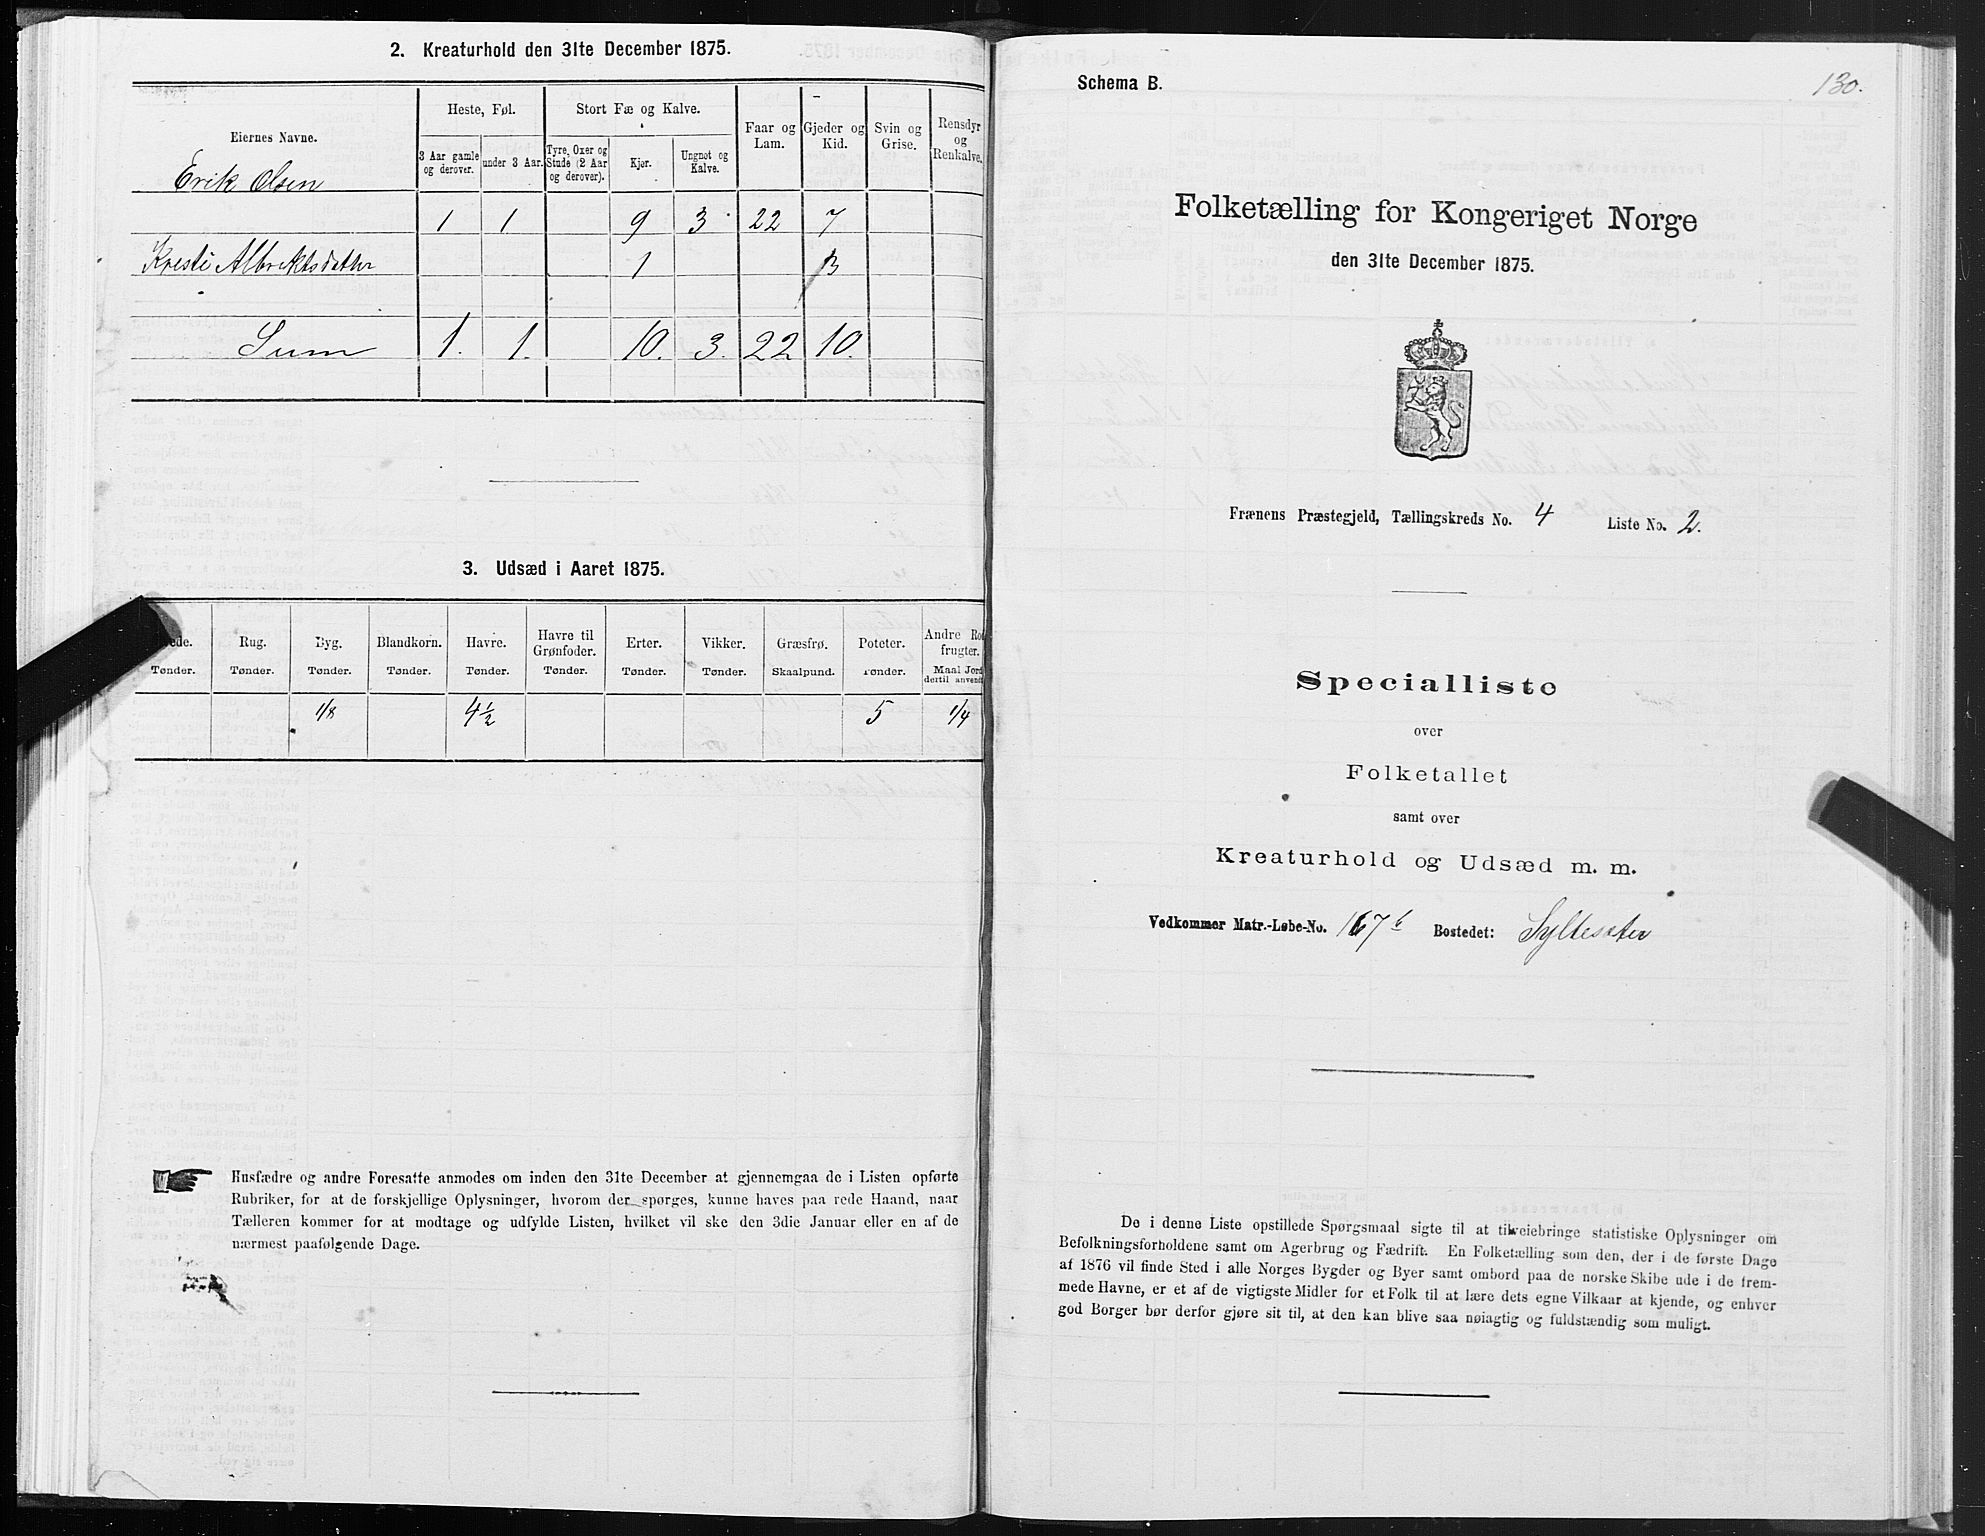 2. Kreaturhold den 31te December 1875.
Eiernes Navne.
Heste, Føl.
Stort Fæ og Kalve.
Faar og Lam.
Gjeder og Kid.
Svin og Grise.
Rensdyr og Renkalve.
3 Aar gamle og derover.
under 3 Aar.
Tyre, Oxer og Stude (2 Aar og derover).
Kjør.
Ungnøt og Kalve.
Erik Olsen
1 1 9 3 22 7
Kresti Albrektsdatter 1 3
Sum 1. 1. 10. 3. 22 10.
3. Udsæd i Aaret 1875.
Rug. Byg. Blandkorn. Havre. Havre til Grønfoder. Erter. Vikker. Græsfrø. Poteter. Andre
frugter.
Tønder. Tønder. Tønder. Tønder. Tønder. Tønder. Tønder. Tønder. Skaalpund. Tønder. Maal Jord
dertil
1/8 4½ 5 1/4
Husfædre og andre Foresatte anmodes om inden den 31te December at gjennemgaa de i Listen opførte
Rubriker, for at de forskjellige Oplysninger, hvorom der spørges, kunne haves paa rede Haand, naar
Tælleren kommer for at modtage og udfylde Listen, hvilket vil ske den 3die Januar eller en af de
nærmest paafølgende Dage.
Schema B.
130.
Folketælling for Kongeriget Norge
den 31te December 1875.
Frænens Præstegjeld, Tællingskreds No. 4 Liste No. 2.
Specialliste
over
Folketallet
samt over
Kreaturhold og Udsæd m. m.
Vedkommer Matr.-Løbe-No. 167b Bostedet: Syltesæter
De i denne Liste opstillede Spørgsmaal sigte til at tilveiebringe statistiske Oplysninger om
Befolkningsforholdene samt om Agerbrug og Fædrift. En Folketælling som den, der i de første Dage
af 1876 vil finde Sted i alle Norges Bygder og Byer samt ombord paa de norske Skibe ude i de frem-
mede Havne, er et af de vigtigste Midler for et Folk til at lære dets egne Vilkaar at kjende, og enhver
god Borger bør derfor gjøre sit til, at den kan blive saa nøiagtig og fuldstændig som muligt.